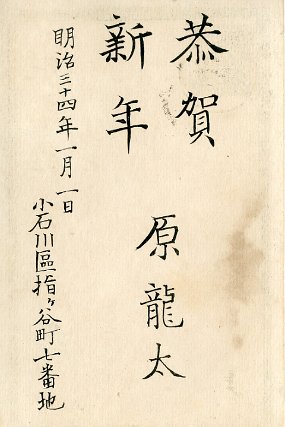 恭賀
新年
原龍太
明治三十四年一月一日
小石川區指ヶ谷町七番地